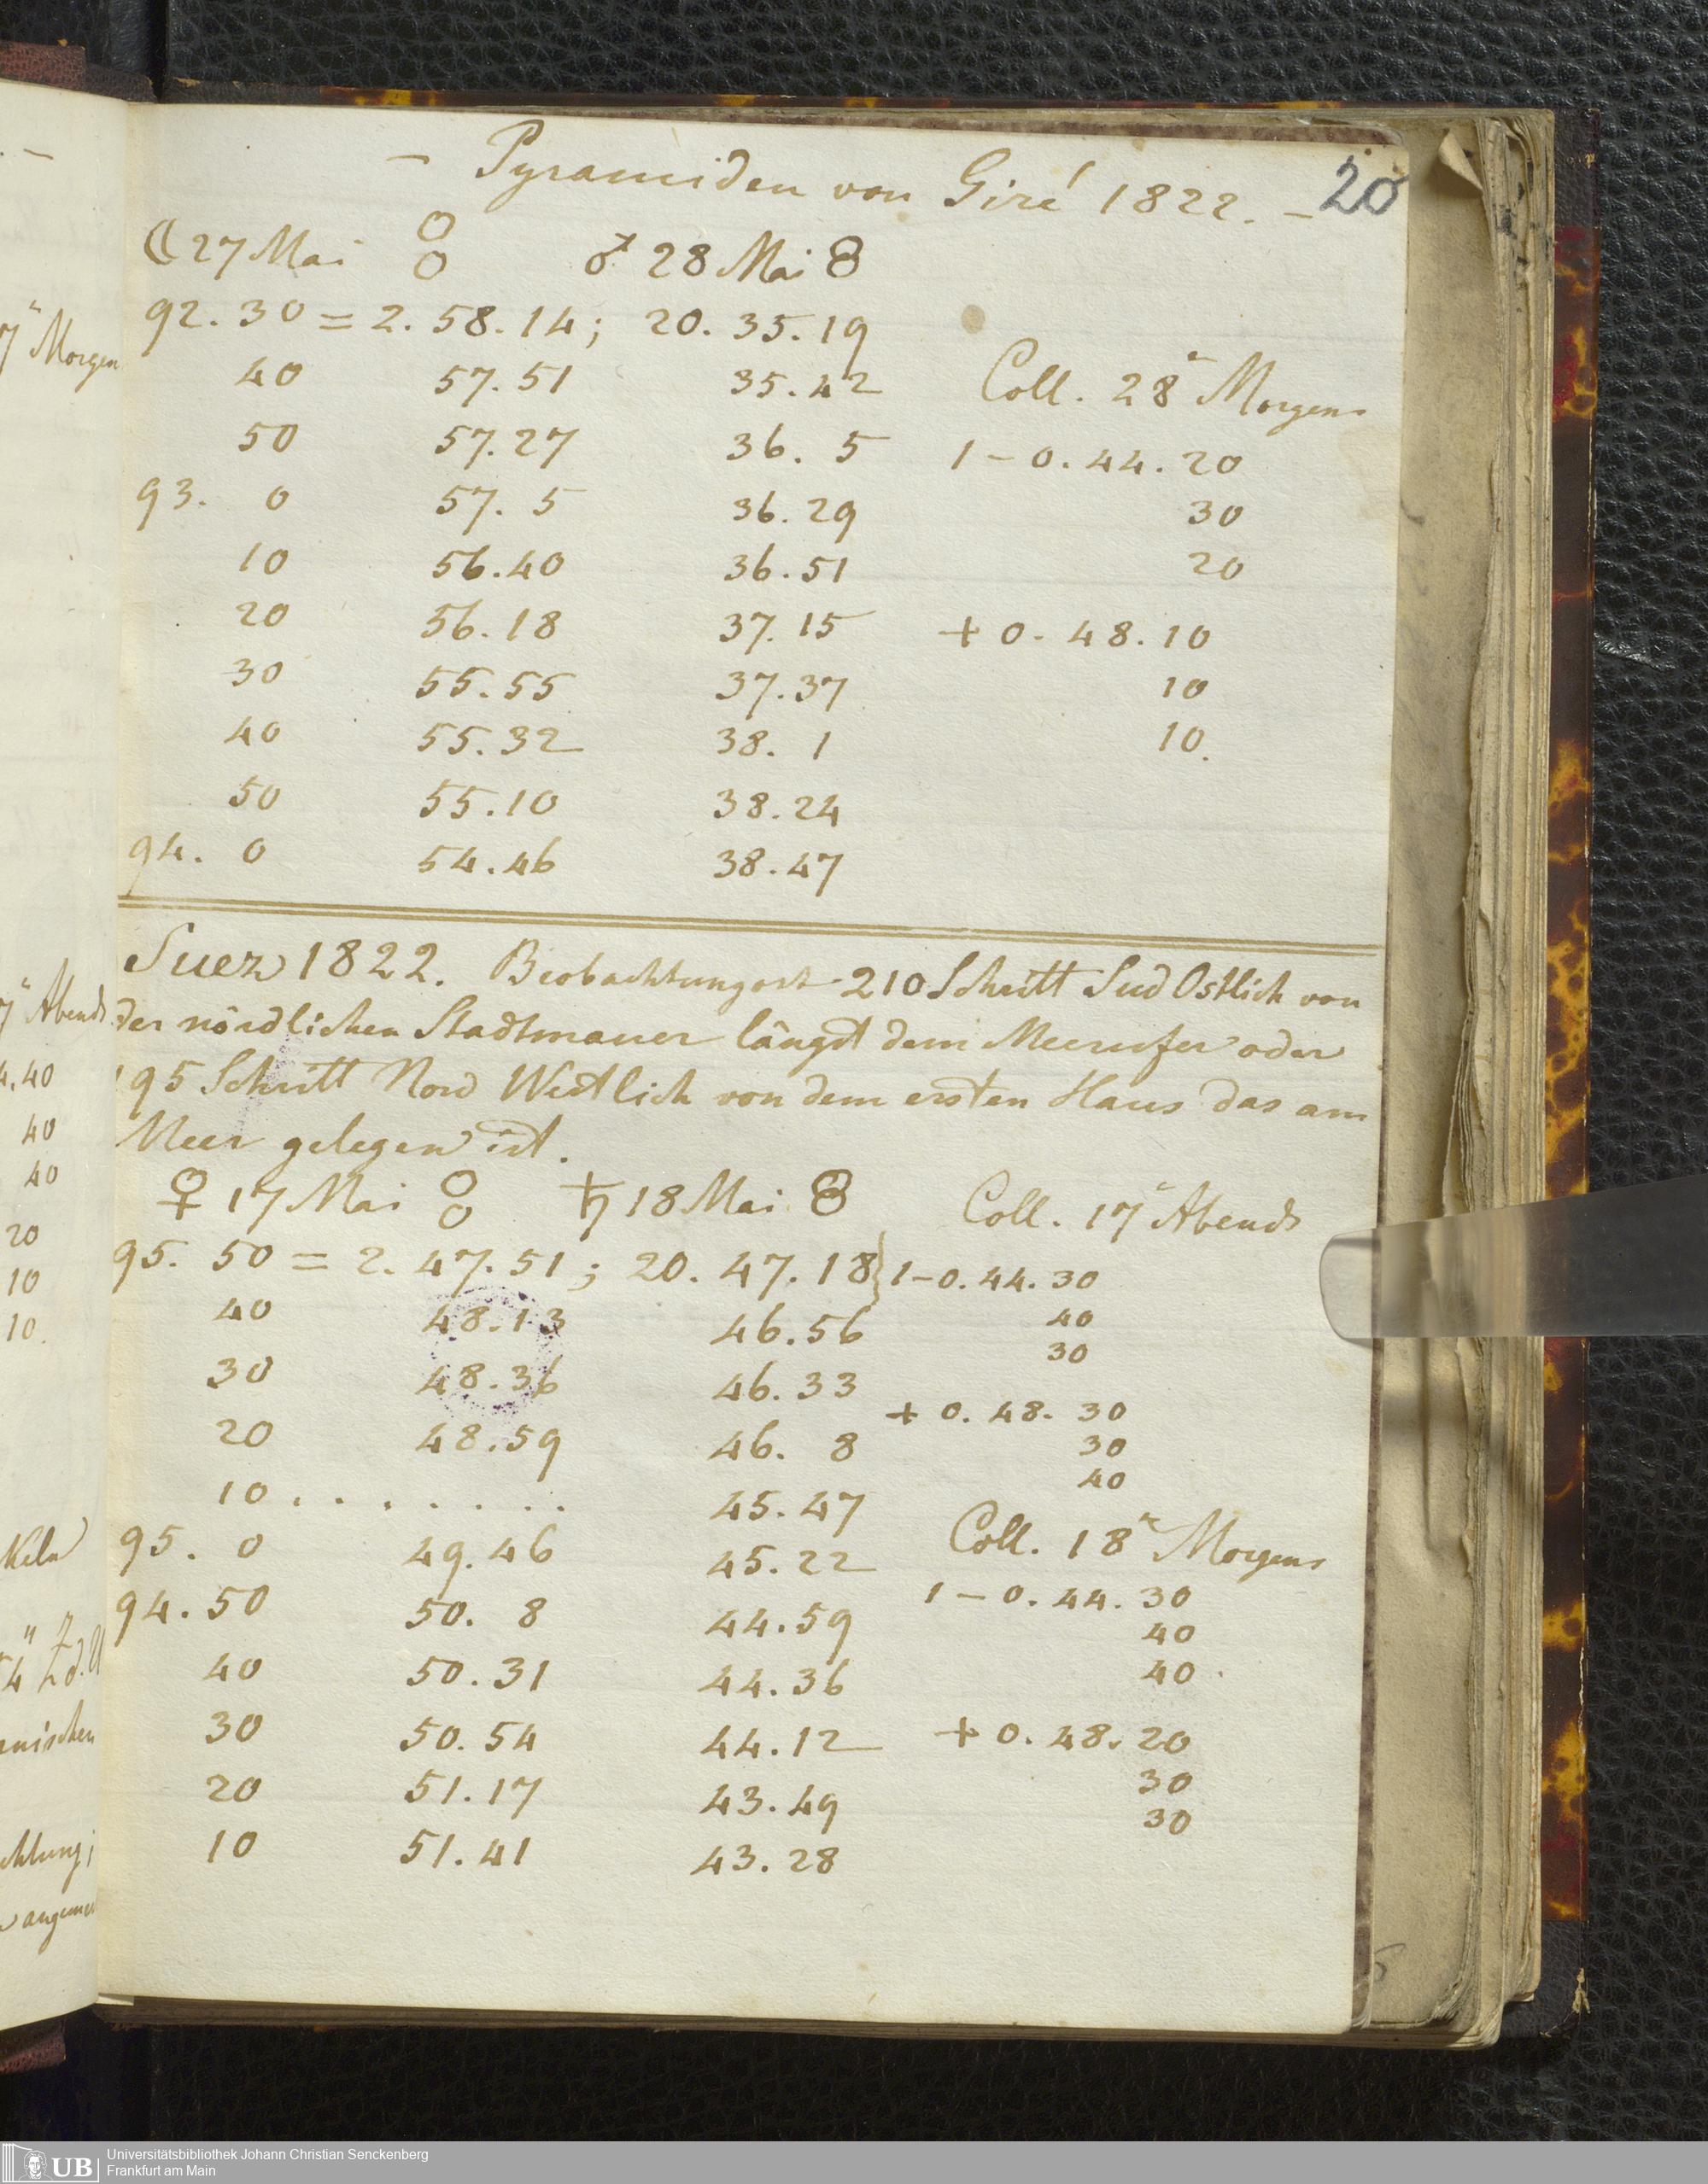 – Pyramiden von Giré 1822. –
20
☾ 27 Mai ♂ 28 Mai
92. 30 = 2. 58. 14; 20. 35. 19
40 57. 51 35. 42 Coll. 28ⁿ Morgens
50 57. 27 36. 5 1 – 0. 44. 20
93. 0 57. 5 36. 29 30
10 56. 40 36. 51 20
20 56. 18 37. 15 + 0. 48. 10
30 55. 55 37. 37 10
40 55. 32 38. 1 10.
50 55. 10 38. 24
94. 0 54. 46 38. 47
Suez 1822. Beobachtungort 210 Schritt Sud Ostlich von
der nördlichen Stadtmauer längst dem Meerufer oder
195 Schritt Nord Westlich von dem ersten Haus das am
Meer gelegen ist.
♀ 17 Mai ♄ 18 Mai Coll. 17ⁿ Abends
95. 50 = 2. 47. 51; 20. 47. 18} 1 – 0. 44. 30
40 48. 13 46. 56 40
30 48. 36 46. 33 30
20 48. 59 46. 8 + 0. 48. 30
30
40
10 . . . . . . . 45. 47
95. 0 49. 46 45. 22 Coll. 18ⁿ Morgens
94. 50 50. 8 44. 59 1 – 0. 44. 30
40
40 50. 31 44. 36 40.
30 50. 54 44. 12 + 0. 48. 20
20 51. 17 43. 49 30
30
10 51. 41 43. 28
7ⁿ Morgen
7ⁿ Abends
4. 40
40
40
20
10
10.
UB
Universitätsbibliothek Johann Christian Senckenberg
Frankfurt am Main